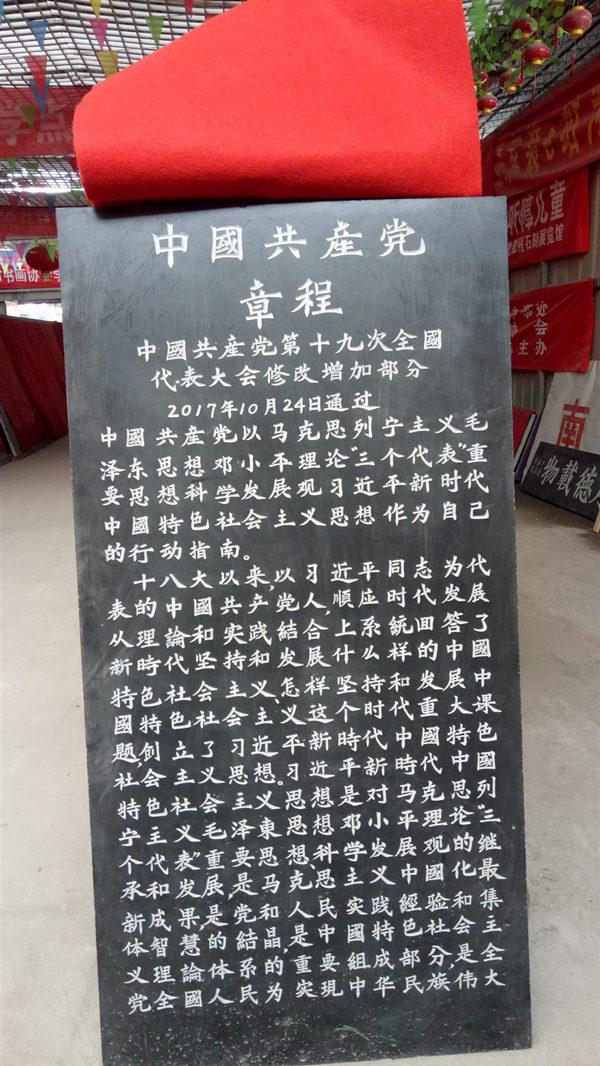 中國共産党
章程
中國共産党第十九次全國
代表大会修改增加部分
2017年10月24日通过
中國共産党以马克思列宁主义毛
泽东思想邓小平理论"三个代表"重
要思想科学发展观习近平新时代
中國特色社会主义思想作为自己
的行动指南。
十八大以来,以习近平同志为代
表的中國共产党人,順应时代发展
从理論和实践結合上系統回答了
新時代坚持和发展什么样的中國
特色社会主义,怎样坚持和发展中
國特色社会主义这个时代重大课
题,创立了习近平新時代中國特色
社会主义思想。习近平新時代中國
特色社会主义思想是对马克思列
宁主义毛泽東思想邓小平理论"三
个代表"重要思想科学发展观的继
承和发展,是马克思主义中國化最
新成果,是党和人民实践經验和集
体智慧的結晶,是中國特色社会主
义理論体系的重要組成部分,是全
党全國人民为实現中华民族伟大
听障儿童
章程石刻展览馆
协会
主办
书画协会
物載德